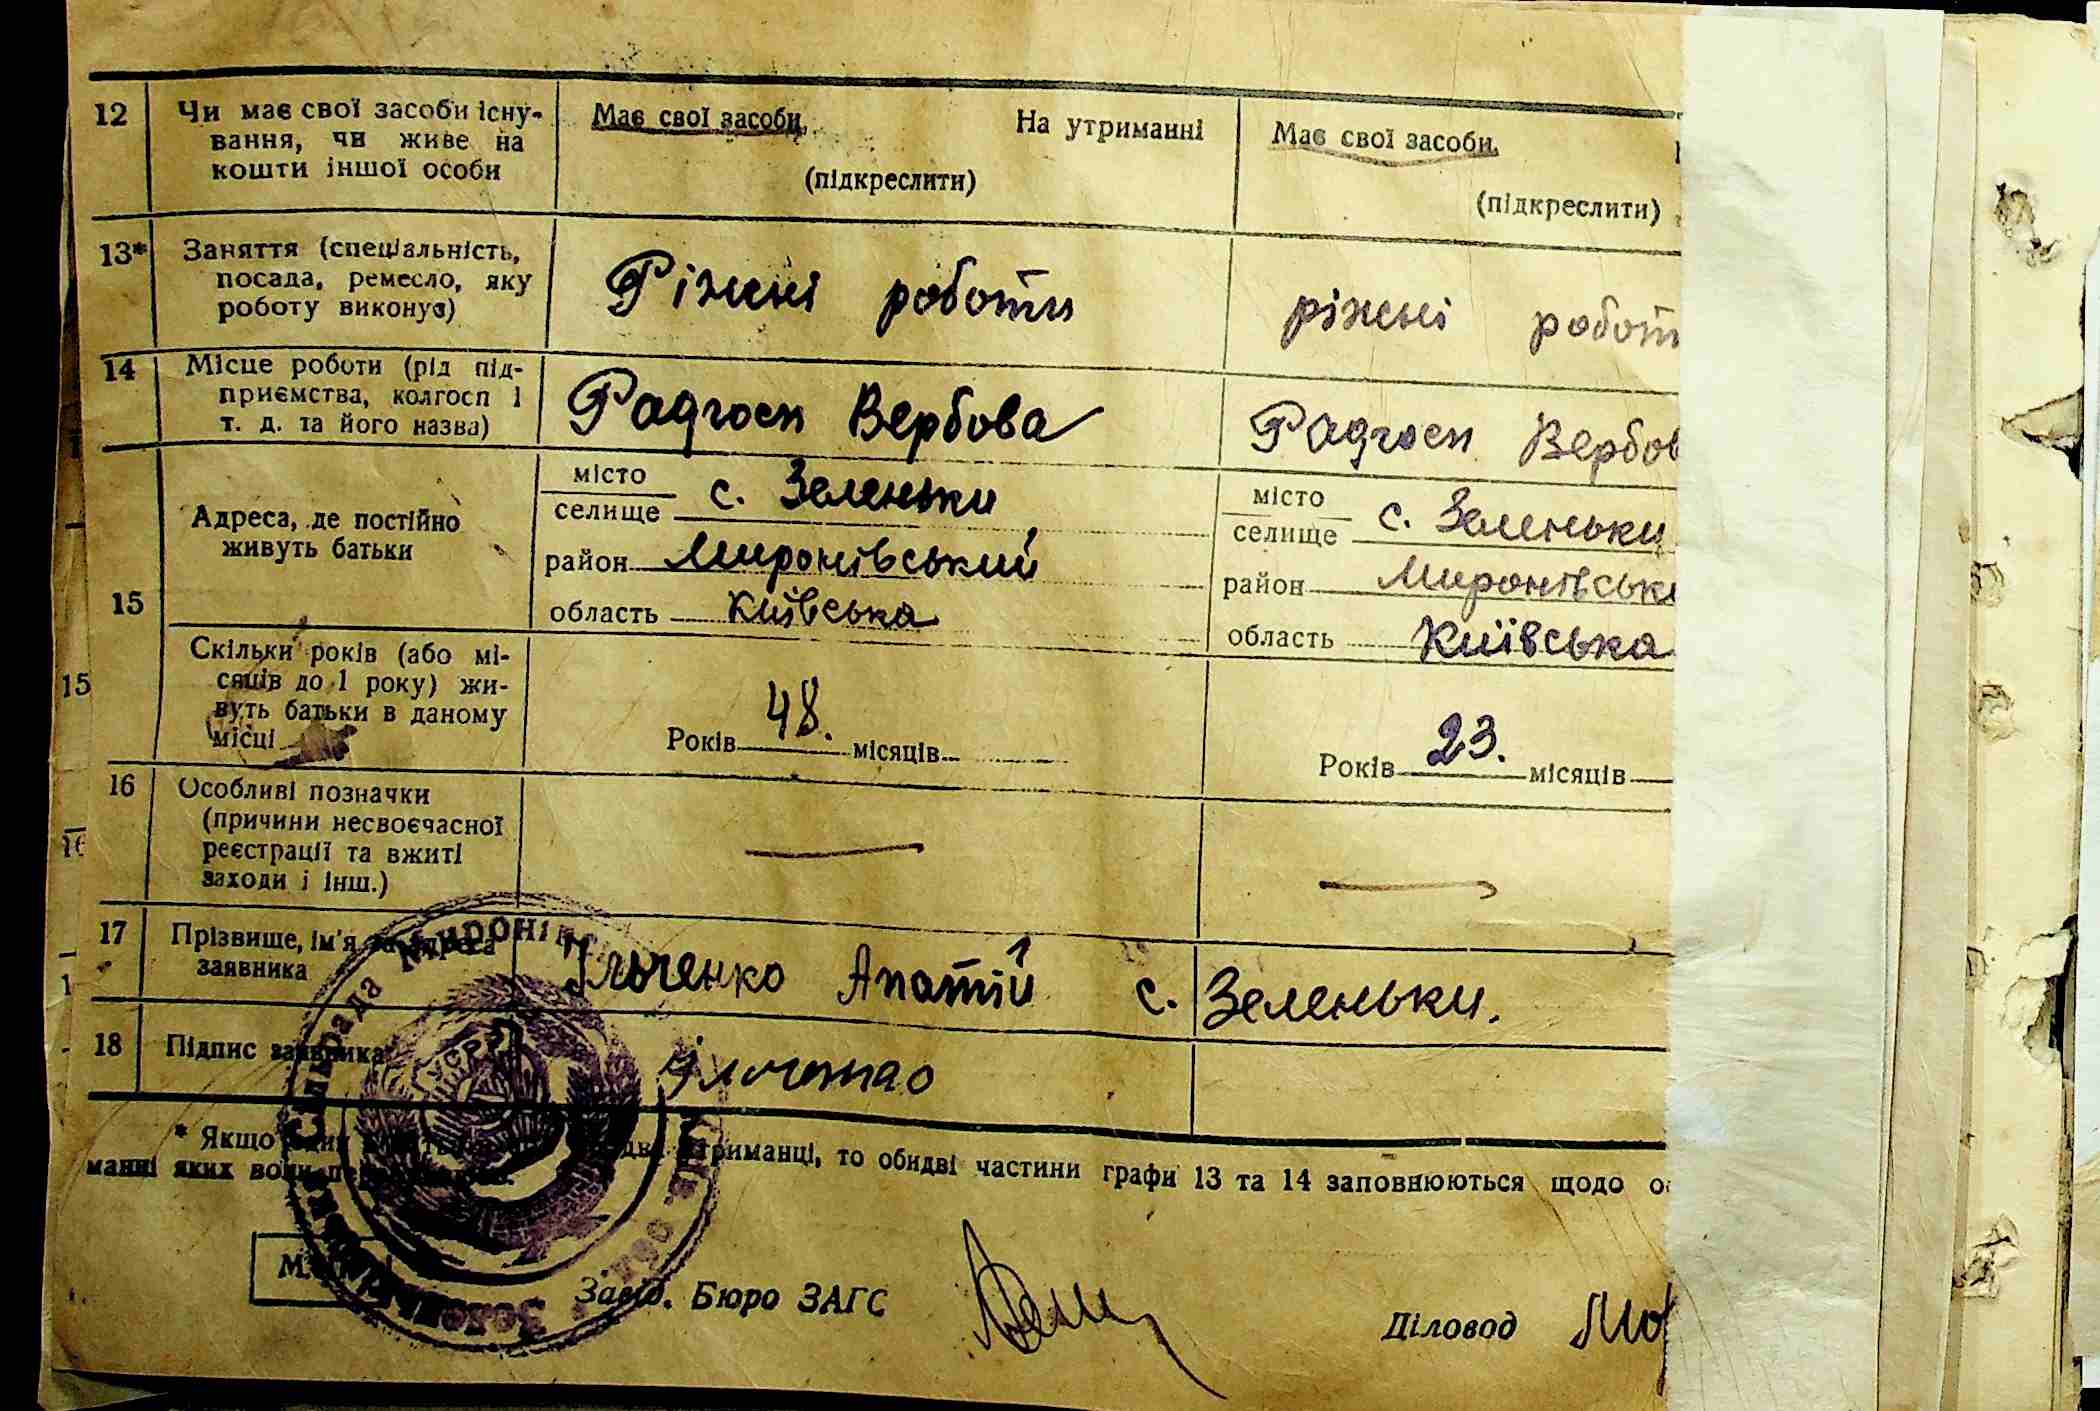 12 Чи має свої засоби існу-
вання, чи живе на
кошти іншої особи
Має свої засоби, На утриманні
(підкреслити)
Має свої засоби,
(підкреслити)
13* Заняття (спеціальність,
посада, ремесло, яку
роботу виконує)
Ріжні роботи
ріжні робот
14 Місце роботи (рід під-
приємства, колгосп і
т. д. та його назва)
Радгосп Вербова
Радгосп Вербов
15
Адреса, де постійно
живуть батьки
місто
селище с. Зеленьки
район Миронівський
область Київська
місто
селище с. Зеленьки
район Миронівськ
область Київська
15
Скільки років (або мі-
сяців до 1 року) жи-
вуть батьки в даному
місці
Років 48. місяців
Років 23. місяців
16 Особливі позначки
(причини несвоєчасної
реєстрації та вжиті
заходи і інш.)
16
17 Прізвище, ім'я та адреса
заявника
Ільченко Апатій с. Зеленьки.
18 Підпис заявника
Сільрада Миронів
УСРР
* Якщо утриманці, то обидві частини графи 13 та 14 заповнюються щодо
манні яких вони
М.
Завід. Бюро ЗАГС
Діловод